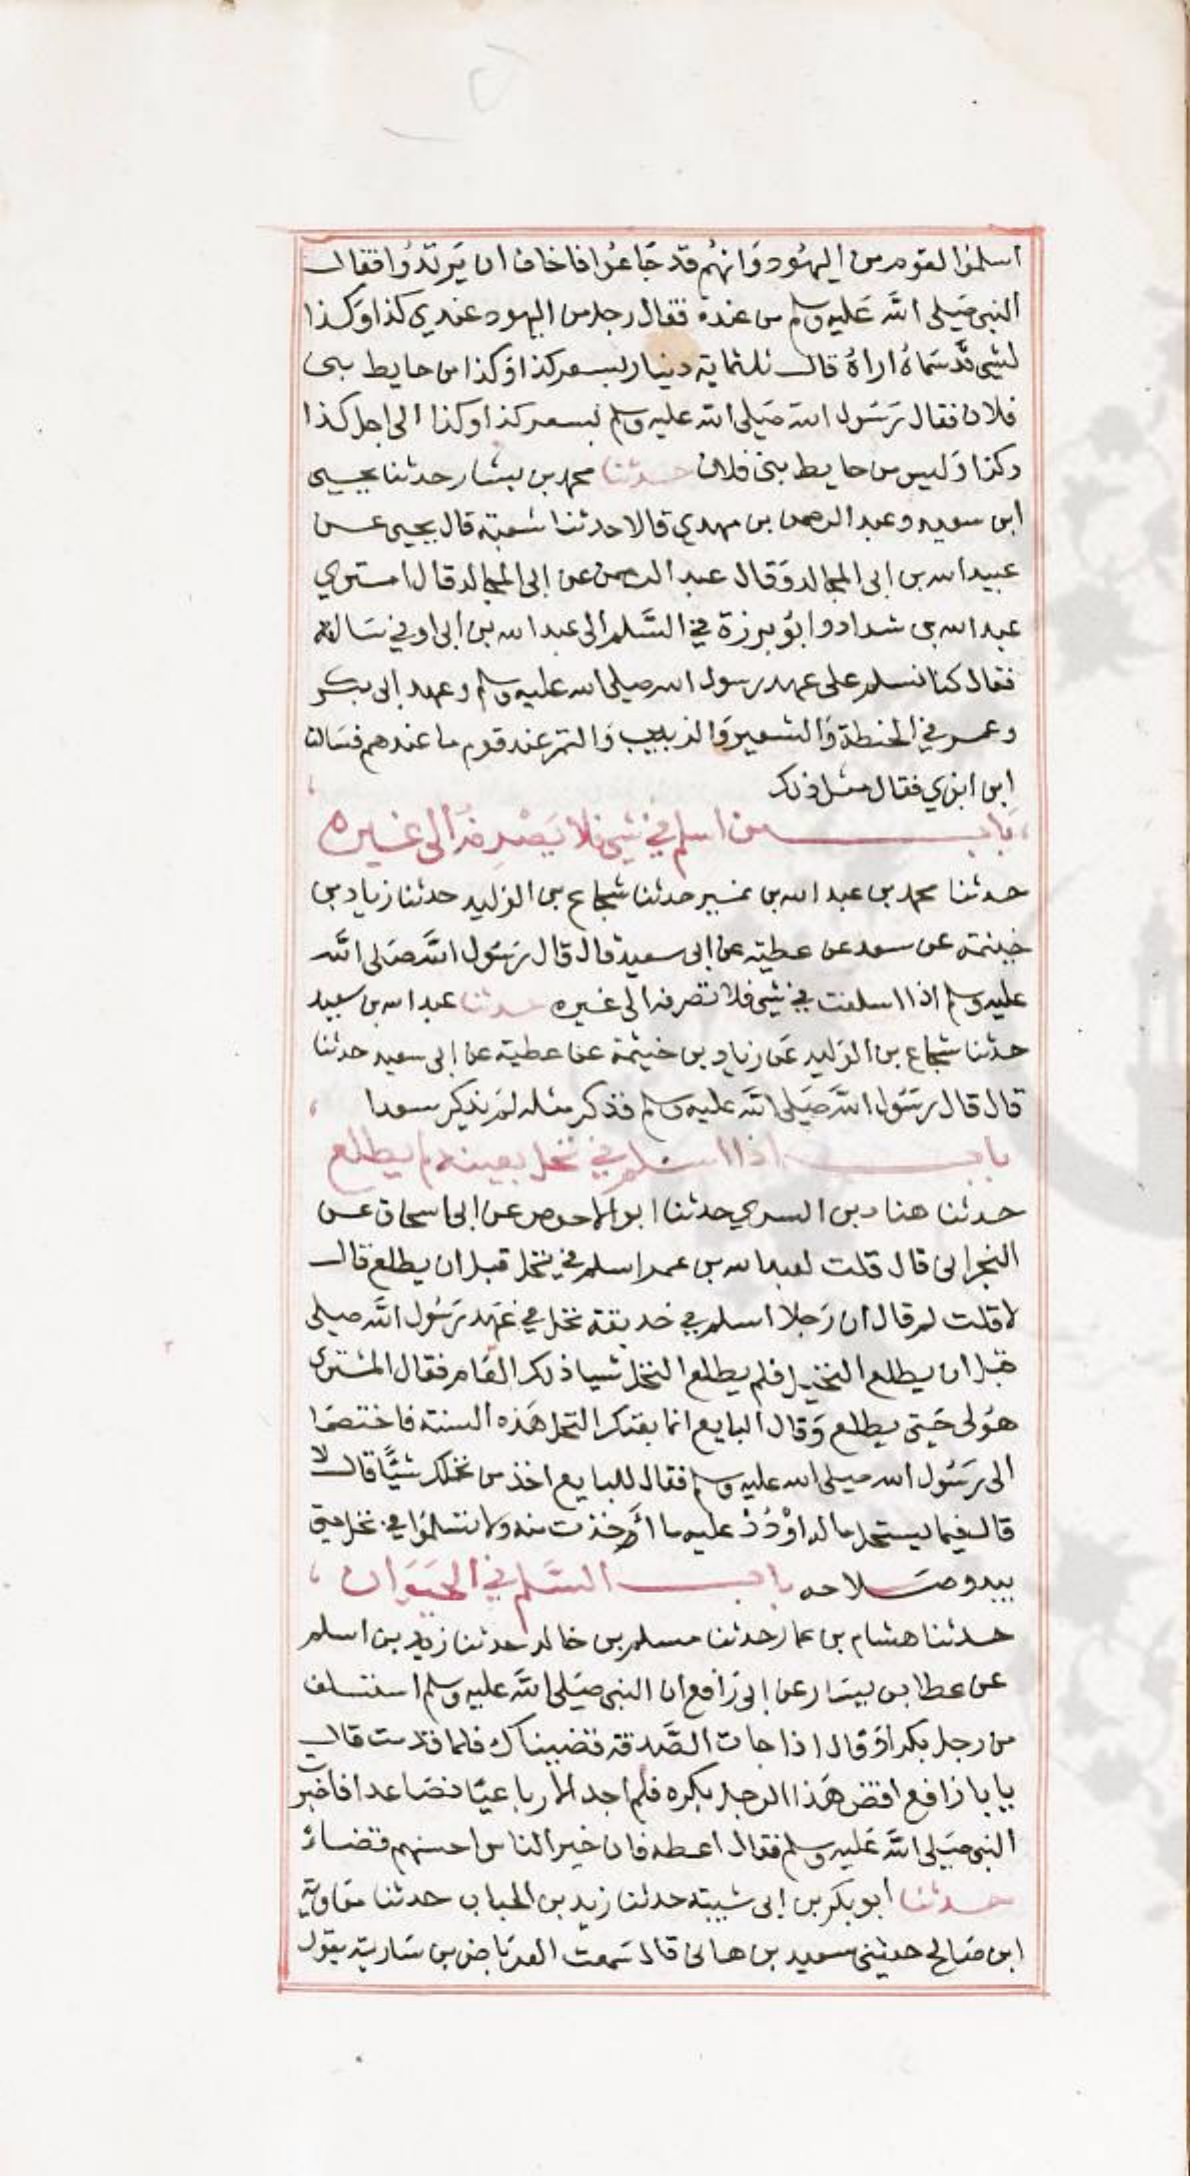 اسلموا لقوم من اليهود وانهم قد جاعوا فاخاف ان يرتدوا فقال
النبي صلى الله عليه وسلم من عنده فقال رجل من اليهود عندي كذا وكذا
لشي قد سماه اراه قال ثلثماية دينار بسعر كذا وكذا من حايط بنى
فلان فقال رسول الله صلى الله عليه وسلم بسعر كذا وكذا الى اجل كذا
وكذا وليس من حايط بنى فلان حدثنا محمد بن بشار حدثنا يحيى
ابن سعيد وعبد الرحمن بن مهدي قالا حدثنا شعبة قال يحيى عن
عبيد الله بن ابى المجالد وقال عبد الرحمن عن ابى المجالد قال امترى
عبد الله بن شداد وابو برزة في السلم الى عبد الله بن ابى اوفي سالته
فقال كنا نسلم على عهد رسول الله صلى الله عليه وسلم وعهد ابى بكر
وعمر في الحنطة والشعير والزبيب والتمر عند قوم ما عندهم فسالنا
ابن ابزي فقال مثل ذلك
باب من اسلم في شي فلا يصرفه الى غيره
حدثنا محمد بن عبد الله بن نمير حدثنا شجاع بن الوليد حدثنا زياد بن
خيثمة عن سعد عن عطية عن ابى سعيد قال قال رسول الله صلى الله
عليه وسلم اذا اسلفت في شي فلا تصرفه الى غيره حدثنا عبد الله بن سعيد
حدثنا شجاع بن الوليد عن زياد بن خيثمة عن عطية عن ابى سعيد حدثنا
قال قال رسول الله صلى الله عليه وسلم فذكر مثله لم يذكر سعدا
باب اذا اسلم في نخل بعينه لم يطلع
حدثنا هناد بن السري حدثنا ابو الاحوص عن ابى اسحاق عن
النجرانى قال قلت لعبد الله بن عمر اسلم في نخل قبل ان يطلع قال
لا قلت لم قال ان رجلا اسلم في حديقة نخل في عهد رسول الله صلى
قبل ان يطلع النخيل فلم يطلع النخل شيا ذلك العام فقال المشترى
هو لى حتى يطلع وقال البايع انما بعتك النخل هذه السنة فاختصما
الى رسول الله صلى الله عليه وسلم فقال للبايع اخذ من نخلك شيا قال لا
قال فيما يستحل ماله اردد عليه ما اخذت منه ولا تسلموا في نخل حتى
يبدو صلاحه باب السلم في الحيوان
حدثنا هشام بن عمار حدثنا مسلم بن خالد حدثنا زيد بن اسلم
عن عطا بن يسار عن ابى رافع ان النبى صلى الله عليه وسلم استسلف
من رجل بكرا وقال اذا جات الصدقة قضيناك فلما قدمت قال
يابا رافع اقض هذا الرجل بكره فلم اجد الا رباعيا فصاعدا فاخبر
النبى صلى الله عليه وسلم فقال اعطه فان خير الناس احسنهم قضاء
حدثنا ابو بكر بن ابى شيبة حدثنا زيد بن الحباب حدثنا معاوية
ابن صالح حدثنى سعيد بن هانى قال سمعت العرباض بن سارية يقول